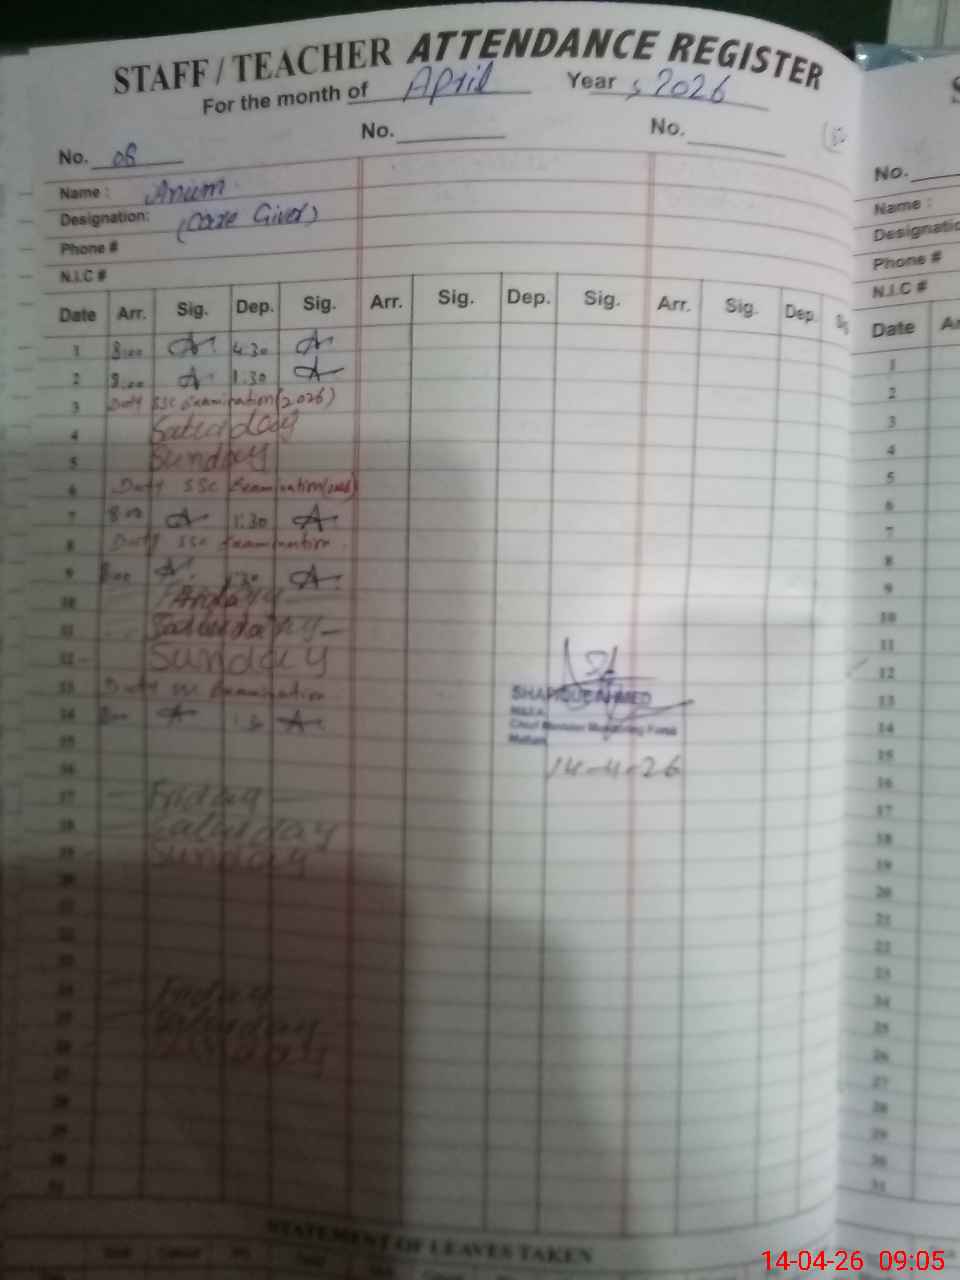 STAFF / TEACHER ATTENDANCE REGISTER
For the month of April Year 2026
No. 08 No. No.
Name : Anum
Designation: (Care Giver)
Phone #
N.I.C #
Date Arr. Sig. Dep. Sig. Arr. Sig. Dep. Sig. Arr. Sig. Dep.
1 8:00 A 4:30 A
2 8:00 A 1:30 A
3 Duty SSC Examination (2026)
4 Saturday
5 Sunday
6 Duty SSC Examination
7 8:00 A 1:30 A
8 Duty SSC Examination
9 8:00 A 1:30 A
10 Friday
11 Saturday
12 Sunday
13 Duty SSC Examination
14 8:00 A A
15
16
17 Friday
18 Saturday
19 Sunday
20
Friday
Saturday
SHAFIQUE AHMED
14-4-26
STATEMENT OF LEAVES TAKEN
No.
Name :
Phone #
N.I.C #
Date
1
2
3
4
5
6
7
8
9
10
11
12
13
14
15
16
17
18
19
20
21
22
23
24
25
26
27
28
29
30
31
14-04-26 09:05